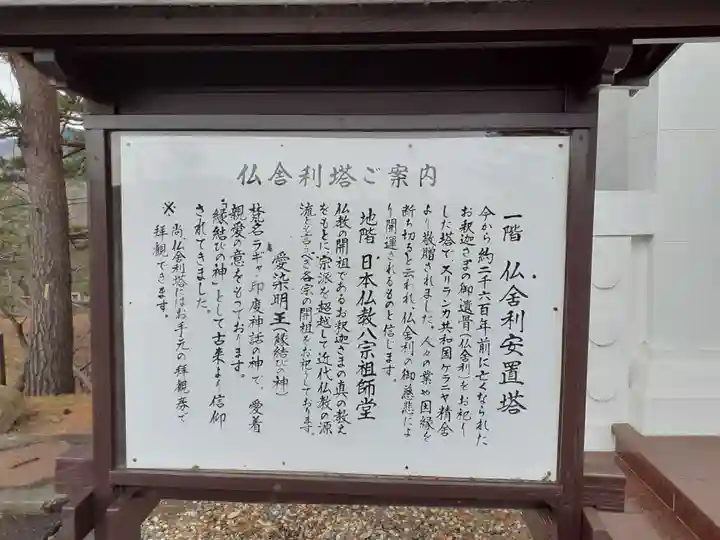 仏舎利塔ご案内
一階 仏舎利安置塔
今から約二千六百年前に亡くなられた
お釈迦さまの御遺骨(仏舎利)をお祀り
した塔で、スリランカ共和国ケラニヤ精舎
より敬贈されました。人々の業や因縁を
断ち切ると云われ、仏舎利の御慈悲によ
り開運されるものと信じます。
地階 日本仏教八宗祖師堂
仏教の開祖であるお釈迦さまの真の教え
をもとに宗派を超越して近代仏教の源
流と言うべき各宗の開祖をお祀しております。
愛染明王(縁結びの神)
梵名ラギャ、印度神話の神で、愛着
親愛の意をもっております。
「縁結びの神」として古来より信仰
されてきました。
※ 尚、仏舎利塔にはお手元の拝観券で
拝観できます。